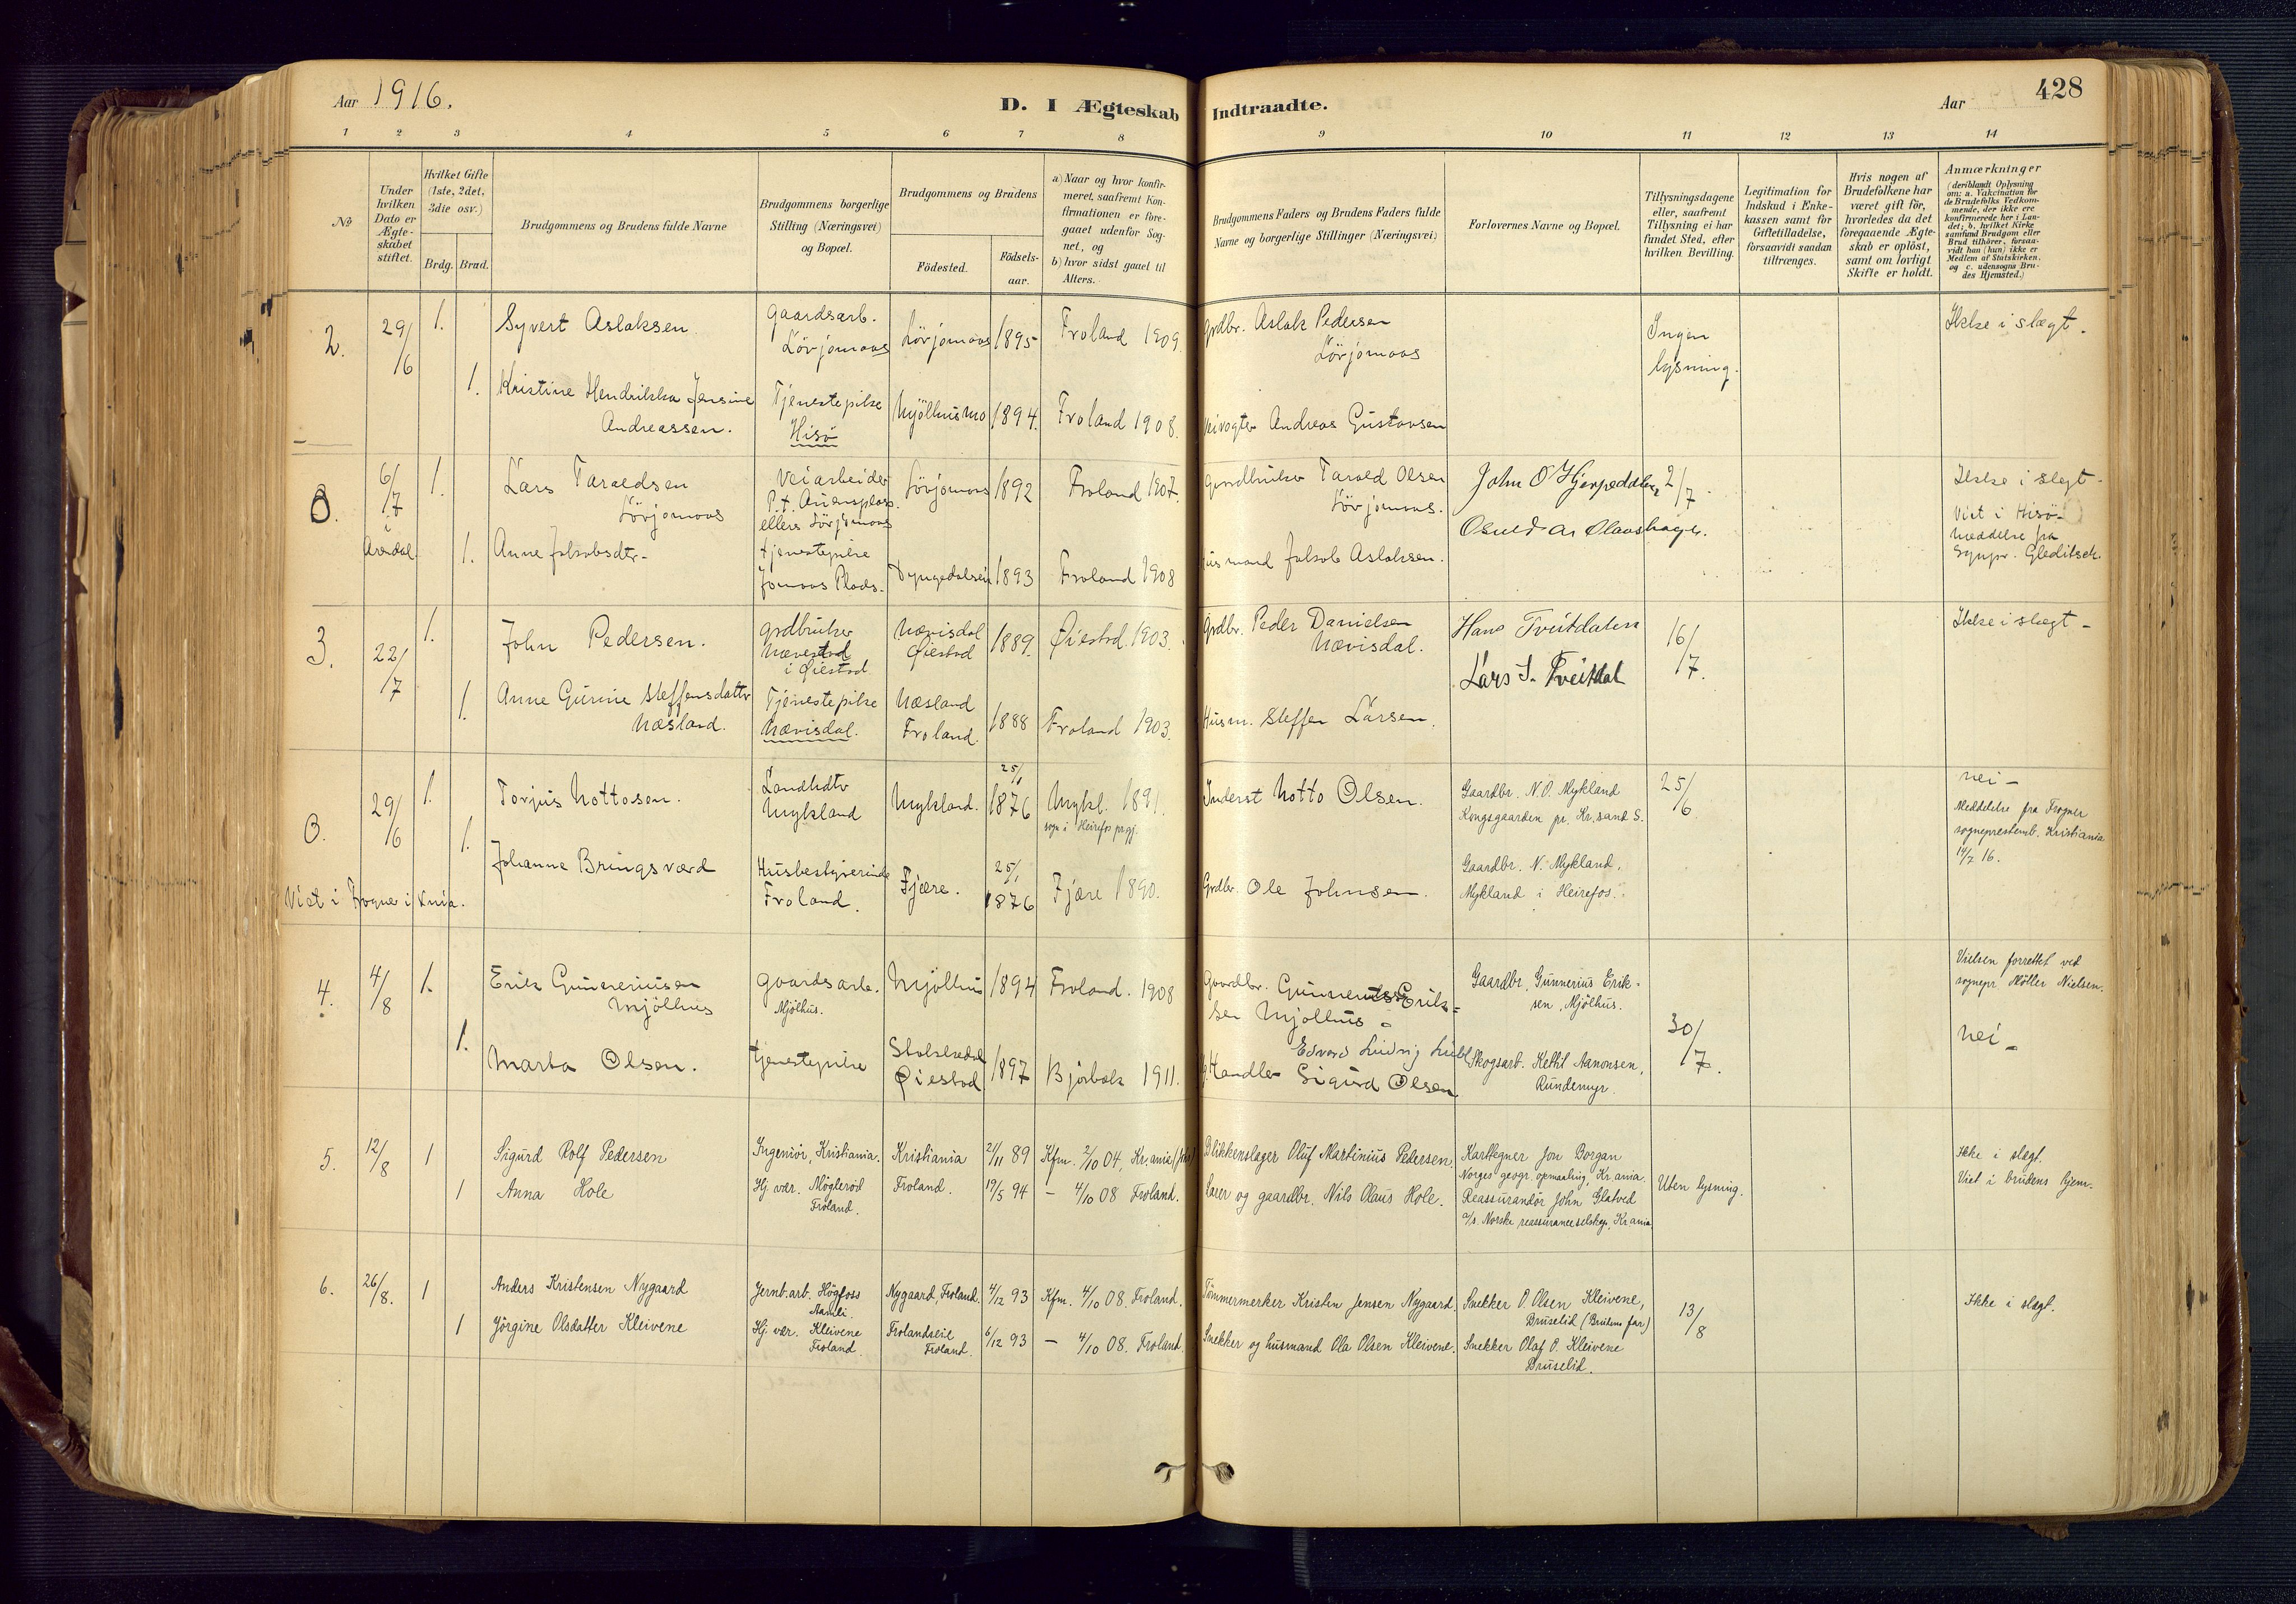 Aar 1916.
D. I Ægteskab Indtraadte.
Aar
428
1 2 3 4 5 6 7 8 9 10 11 12 13 14
No
Under hvilken Dato er Ægteskabet stiftet.
Hvilket Gifte (1ste, 2det, 3die osv.)
Brdg. Brud.
Brudgommens og Brudens fulde Navne
Brudgommens borgerlige Stilling (Næringsvei) og Bopæl.
Brudgommens og Brudens
Födested.
Födselsaar.
a) Naar og hvor konfirmeret, saafremt Konfirmationen er foregaaet udenfor Sognet, og
b) hvor sidst gaaet til Alters.
Brudgommens Faders og Brudens Faders fulde Navne og borgerlige Stillinger (Næringsvei)
Forlovernes Navne og Bopæl.
Tillysningsdagene eller, saafremt Tillysning ei har fundet Sted, efter hvilken Bevilling.
Legitimation for Indskud i Enkekassen samt for Giftetilladelse, forsaavidt saadan tiltrænges.
Hvis nogen af Brudefolkene har været gift för, hvorledes da det foregaaende Ægteskab er oplöst, samt om lovligt Skifte er holdt.
Anmærkninger
(deriblandt Oplysning om: a. Vakcination for de Brudefolks Vedkommende, der ikke ere konfirmerede her i Landet; b. hvilket Kirkesamfund Brudgom eller Brud tilhörer, forsaavidt han (hun) ikke er Medlem af Statskirken, og c. udensogns Brudes Hjemsted.)
2. 29/6 1. Syvert Aslaksen gaardsarb. Lörjomaas Lörjomaas 1895 Froland 1909 grdbr. Aslak Pedersen Lörjomaas Ingen lysning. Ikke i slægt.
1. Kristine Hendrikka Jensine Andreassen. Tjenestepike Hisö Mjölhusmo 1894. Froland 1908. Veivogter Andreas Gustavsen
0. 6/7 i Arendal 1. Lars Taraldsen Lörjomaas Veiarbeider P.t. ellers Lörjomaas Lörjomaas 1892 Froland 1907. gaardbruker Tarald Olsen Lörjomaas. John O 2/7. Ikke i slægt.
Viet i Hisö
Meddelse fra Sognpr. Gleditsch.
1. Anne Jakobsdtr tjenestepike Jomaas Plads. 1893 Froland 1908 Husmand Jakob Aslaksen.
3. 22/7 1. John Pedersen. grdbruker i Øiestad Nævisdal Øiestad 1889. Øiestad. 1903. Grdbr. Peder Danielsen Nævisdal. Hans Tveitdalen 16/7. Ikke i slægt
Lars S. Tveitdal
1. Anne Gurine Steffensdatter Næsland. Tjenestepike Nævisdal. Næsland Froland. 1888 Froland 1903. Husm. Steffen Larsen.
0. 29/6 1. Torjus Nottosen. Landhdtr Mykland Mykland. 25/1 1876 Mykl. 1891. sogn i Heirefos prgj. Inderst Notto Olsen. Gaardbr. N. O. Mykland Kongsgaarden pr. Kr.sand S. 25/6 nei
Meddelelse fra Frogner sogneprestemb. Kristiania 14/7 16.
1. Johanne Bringsværd Husbestyrerinde Froland. Fjære. 25/1 1876 Fjære 1890. Grdbr. Ole Johnsen. Gaardbr. N. Mykland, Mykland i Heirefos.
Viet i Frogner i Xnia.
4. 4/8 1. Erik Gunneriusen Mjölhus gaardsarb. Mjölhus. Mjölhus 1894 Froland. 1908 Gaardbr. Gunnerius Eriksen Mjölhus Gaardbr. Gunnerius Eriksen, Mjölhus. 30/7. Vielsen forrettet ved sognepr. Möller Nielsen.
nei
1. Marta Olsen. tjenestepike Øiestad 1897 Bjorbæk 1911. Edvard Ludvig
Handler Sigurd Olsen Skogsarb. Kettil Aanonsen, Rundemyr.
5. 12/8 1 Sigurd Rolf Pedersen Ingeniör, Kristiania. Kristiania 21/11 89 Kfm. 2/10 04, Kr.ania Blikkenslager Oluf Martinius Pedersen. Karttegner Jon Borgan Norges geogr. opmaaling, Kr.ania. Uten lysning. Ikke i slægt.
Viet i brudens hjem.
1 Anna Hole Hj. vær. Möglerød Froland. Froland. 19/5 94 — 4/10 08 Froland. Lærer og gaardbr. Nils Olaus Hole. Reassurandör John Glatved a/s. Norske reassuranceselskap, Kr.ania
6. 26/8. 1 Anders Kristensen Nygaard Jernb.arb. Högfoss Aamli. Nygaard, Froland. 4/12 93 Kfm. 4/10 08 Froland. Tömmermerker Kristen Jensen Nygaard. Snekker O. Olsen Kleivene, Bruselid (Brudens far) 13/8 Ikke i slægt.
1 Jörgine Olsdatter Kleivene Hj. vær. Kleivene Froland. Frolandseie Froland. 6/12 93 — 4/10 08. Froland. Snekker og husmand Ola Olsen Kleivene. Snekker Olaf O. Kleivene Bruselid.